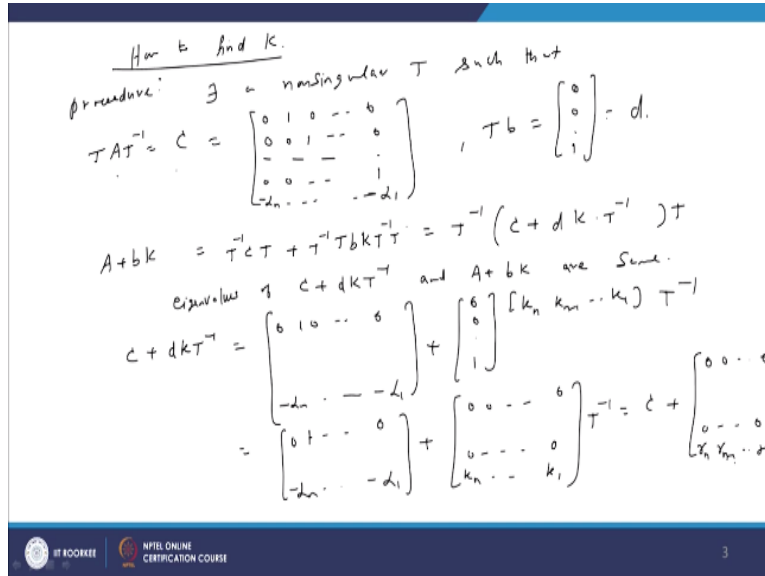 How to find K.
procedure: ∃ a nonsingular T such that
TAT⁻¹ = C = [0 1 0 -- 0; 0 0 1 -- 0; - - - .; 0 0 -- 1; -αn ... -α1], Tb = [0; 0; :; 1] = d.
A+bK = T⁻¹CT + T⁻¹TbKT⁻¹T = T⁻¹(C + dK·T⁻¹)T
eigenvalues of C+dKT⁻¹ and A+bK are same.
C+dKT⁻¹ = [0 1 0 -- 0; -αn . — -α1] + [0; 0; :; 1] [kn kn-1 .. k1] T⁻¹
= [0 1 - - 0; -αn . . -α1] + [0 0 -- 0; 0 -- . 0; kn . - k1] T⁻¹ = C + [0 0 . .; 0 - - 0; γn γn-1 ..
IIT ROORKEE
NPTEL ONLINE
CERTIFICATION COURSE
3